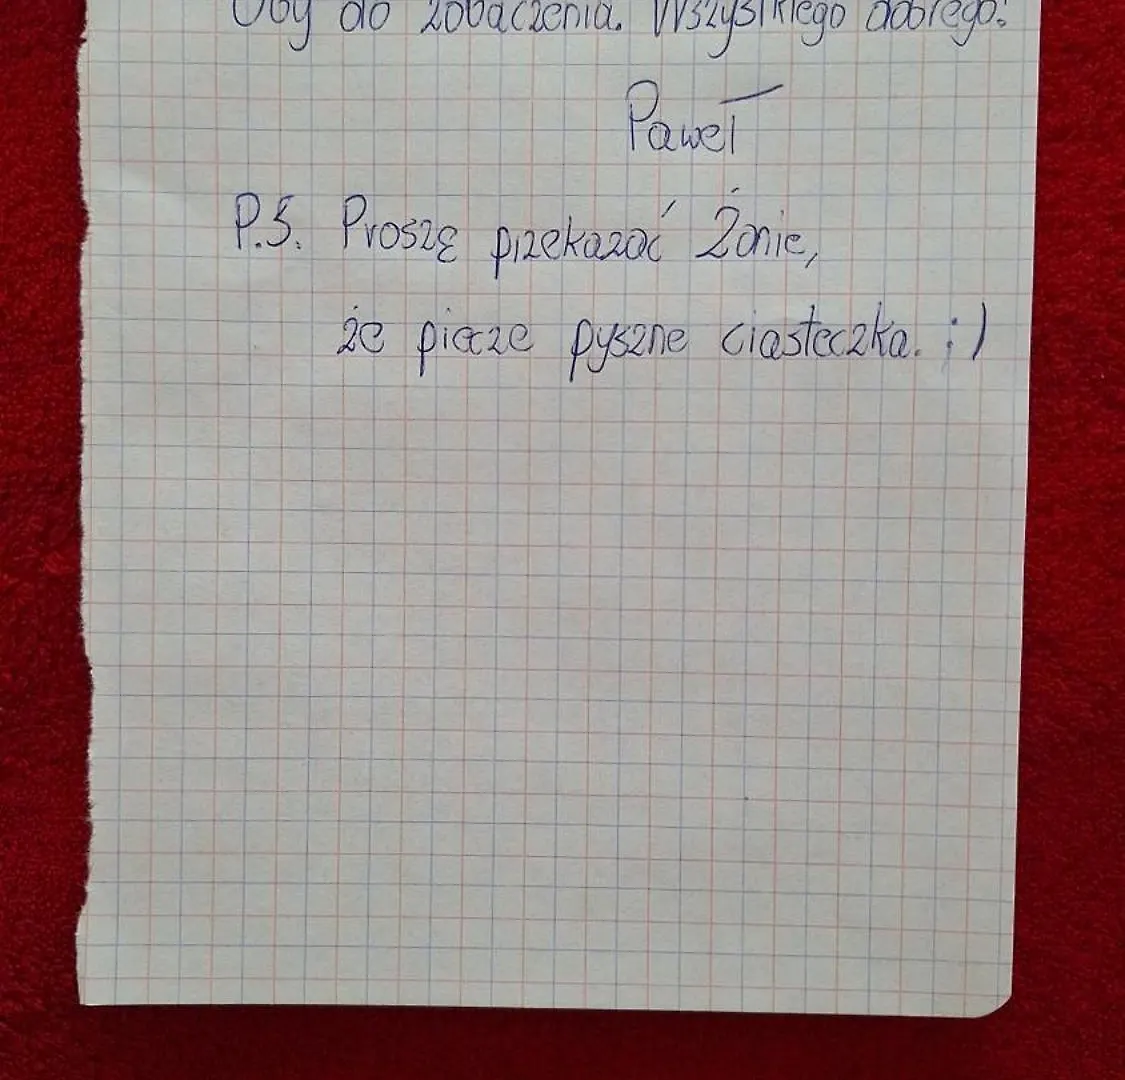 Oby do zobaczenia. Wszystkiego dobrego!
Paweł
P.S. Proszę przekazać Żonie,
że piecze pyszne ciasteczka. ;)